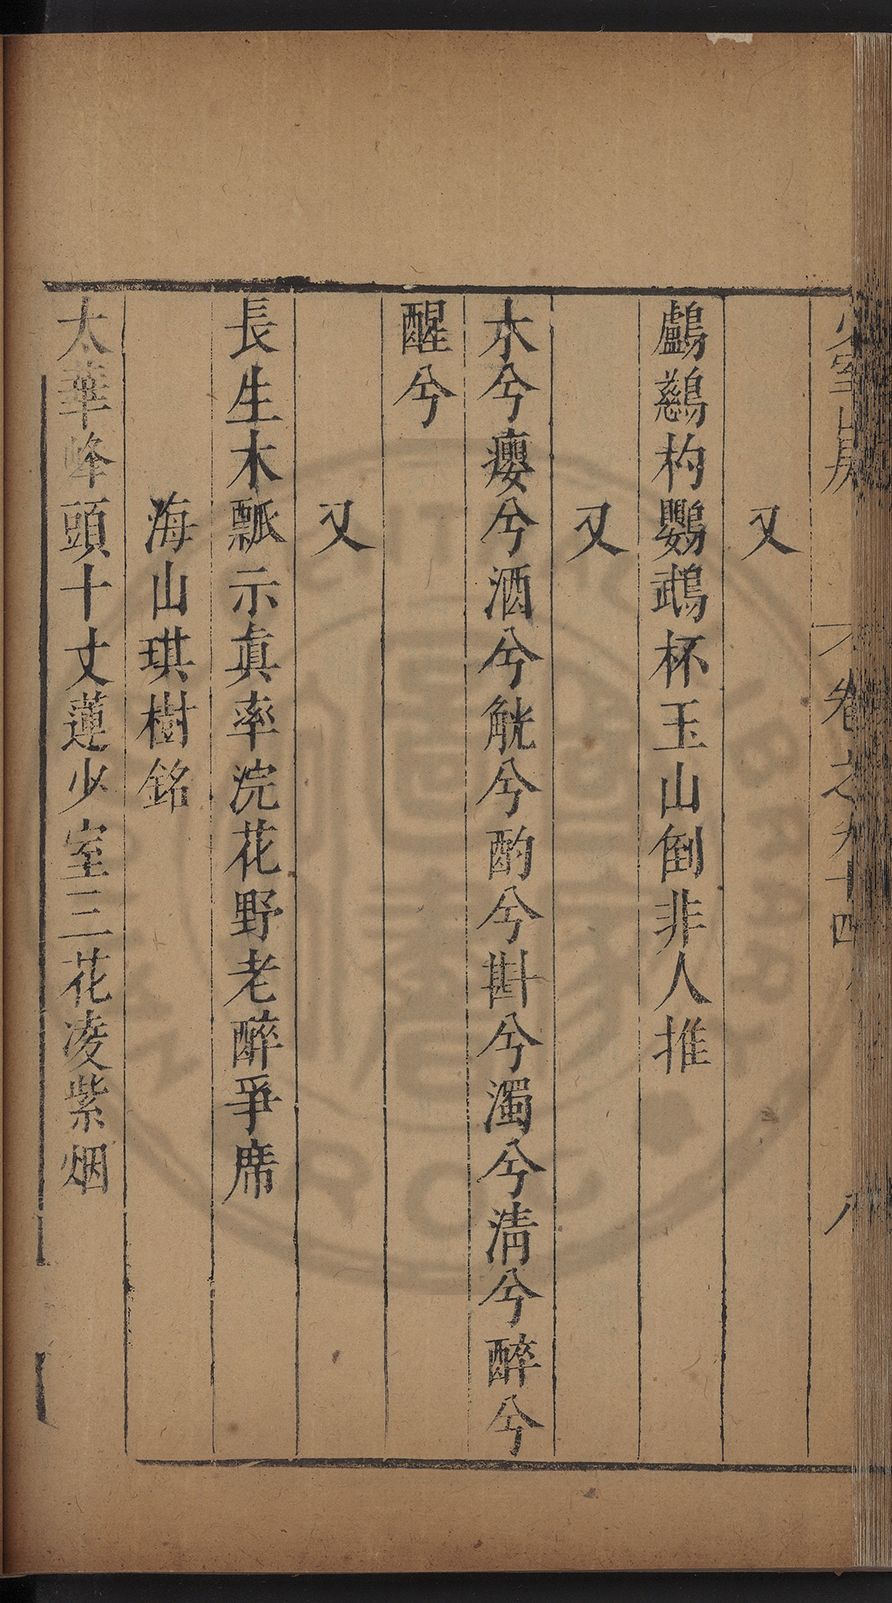 少室山房 卷之九十四 八
又
鸕鶿杓鸚鵡杯玉山倒非人推
又
木兮癭兮酒兮觥兮酌兮斟兮濁兮清兮醉兮
醒兮
又
長生木瓢示真率浣花野老醉爭席
海山琪樹銘
太華峰頭十丈蓮少室三花凌紫烟